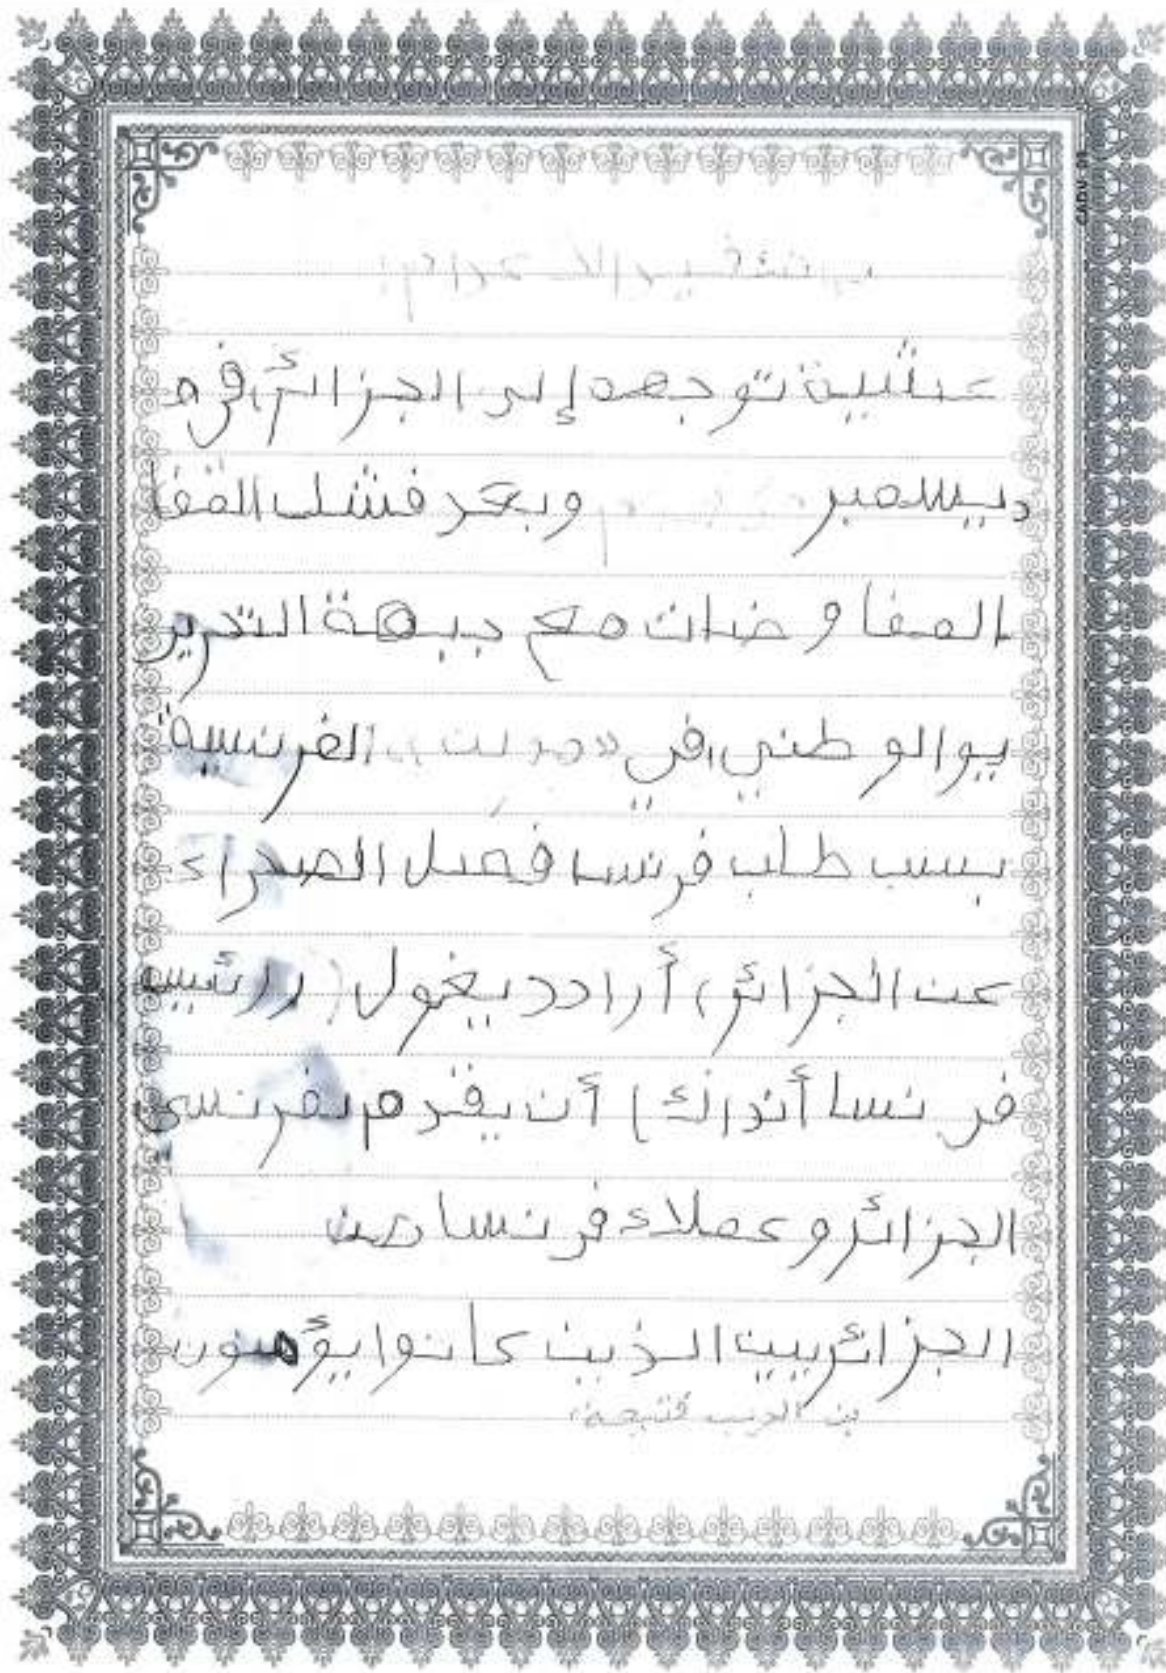 عشية توجهه إلى الجزائر، في 9
ديسمبر وبعد فشل المفا
المفاوضات مع جبهة التحرير
يو الوطني، في « » الفرنسية
بسبب طلب فرنسا فصل الصحراء
عن الجزائر، أراد ديغول (ررئيس
فرنسا أنذاك) أن يقدم لفرنسي
الجزائر وعملاء فرنسا من
الجزائريين الذين كانوا يؤمنون
فتيحة
CADV 01